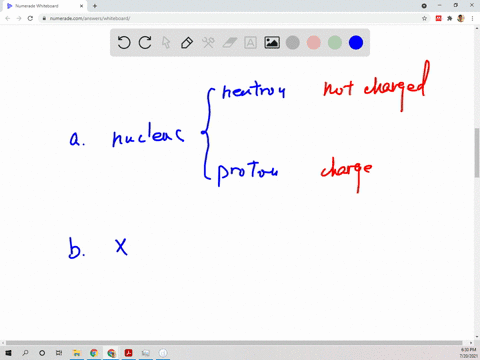 Numerade Whiteboard
numerade.com/answers/whiteboard/
neutron not charged
a. nucleus
proton charge
b. X
6:30 PM
7/30/2021